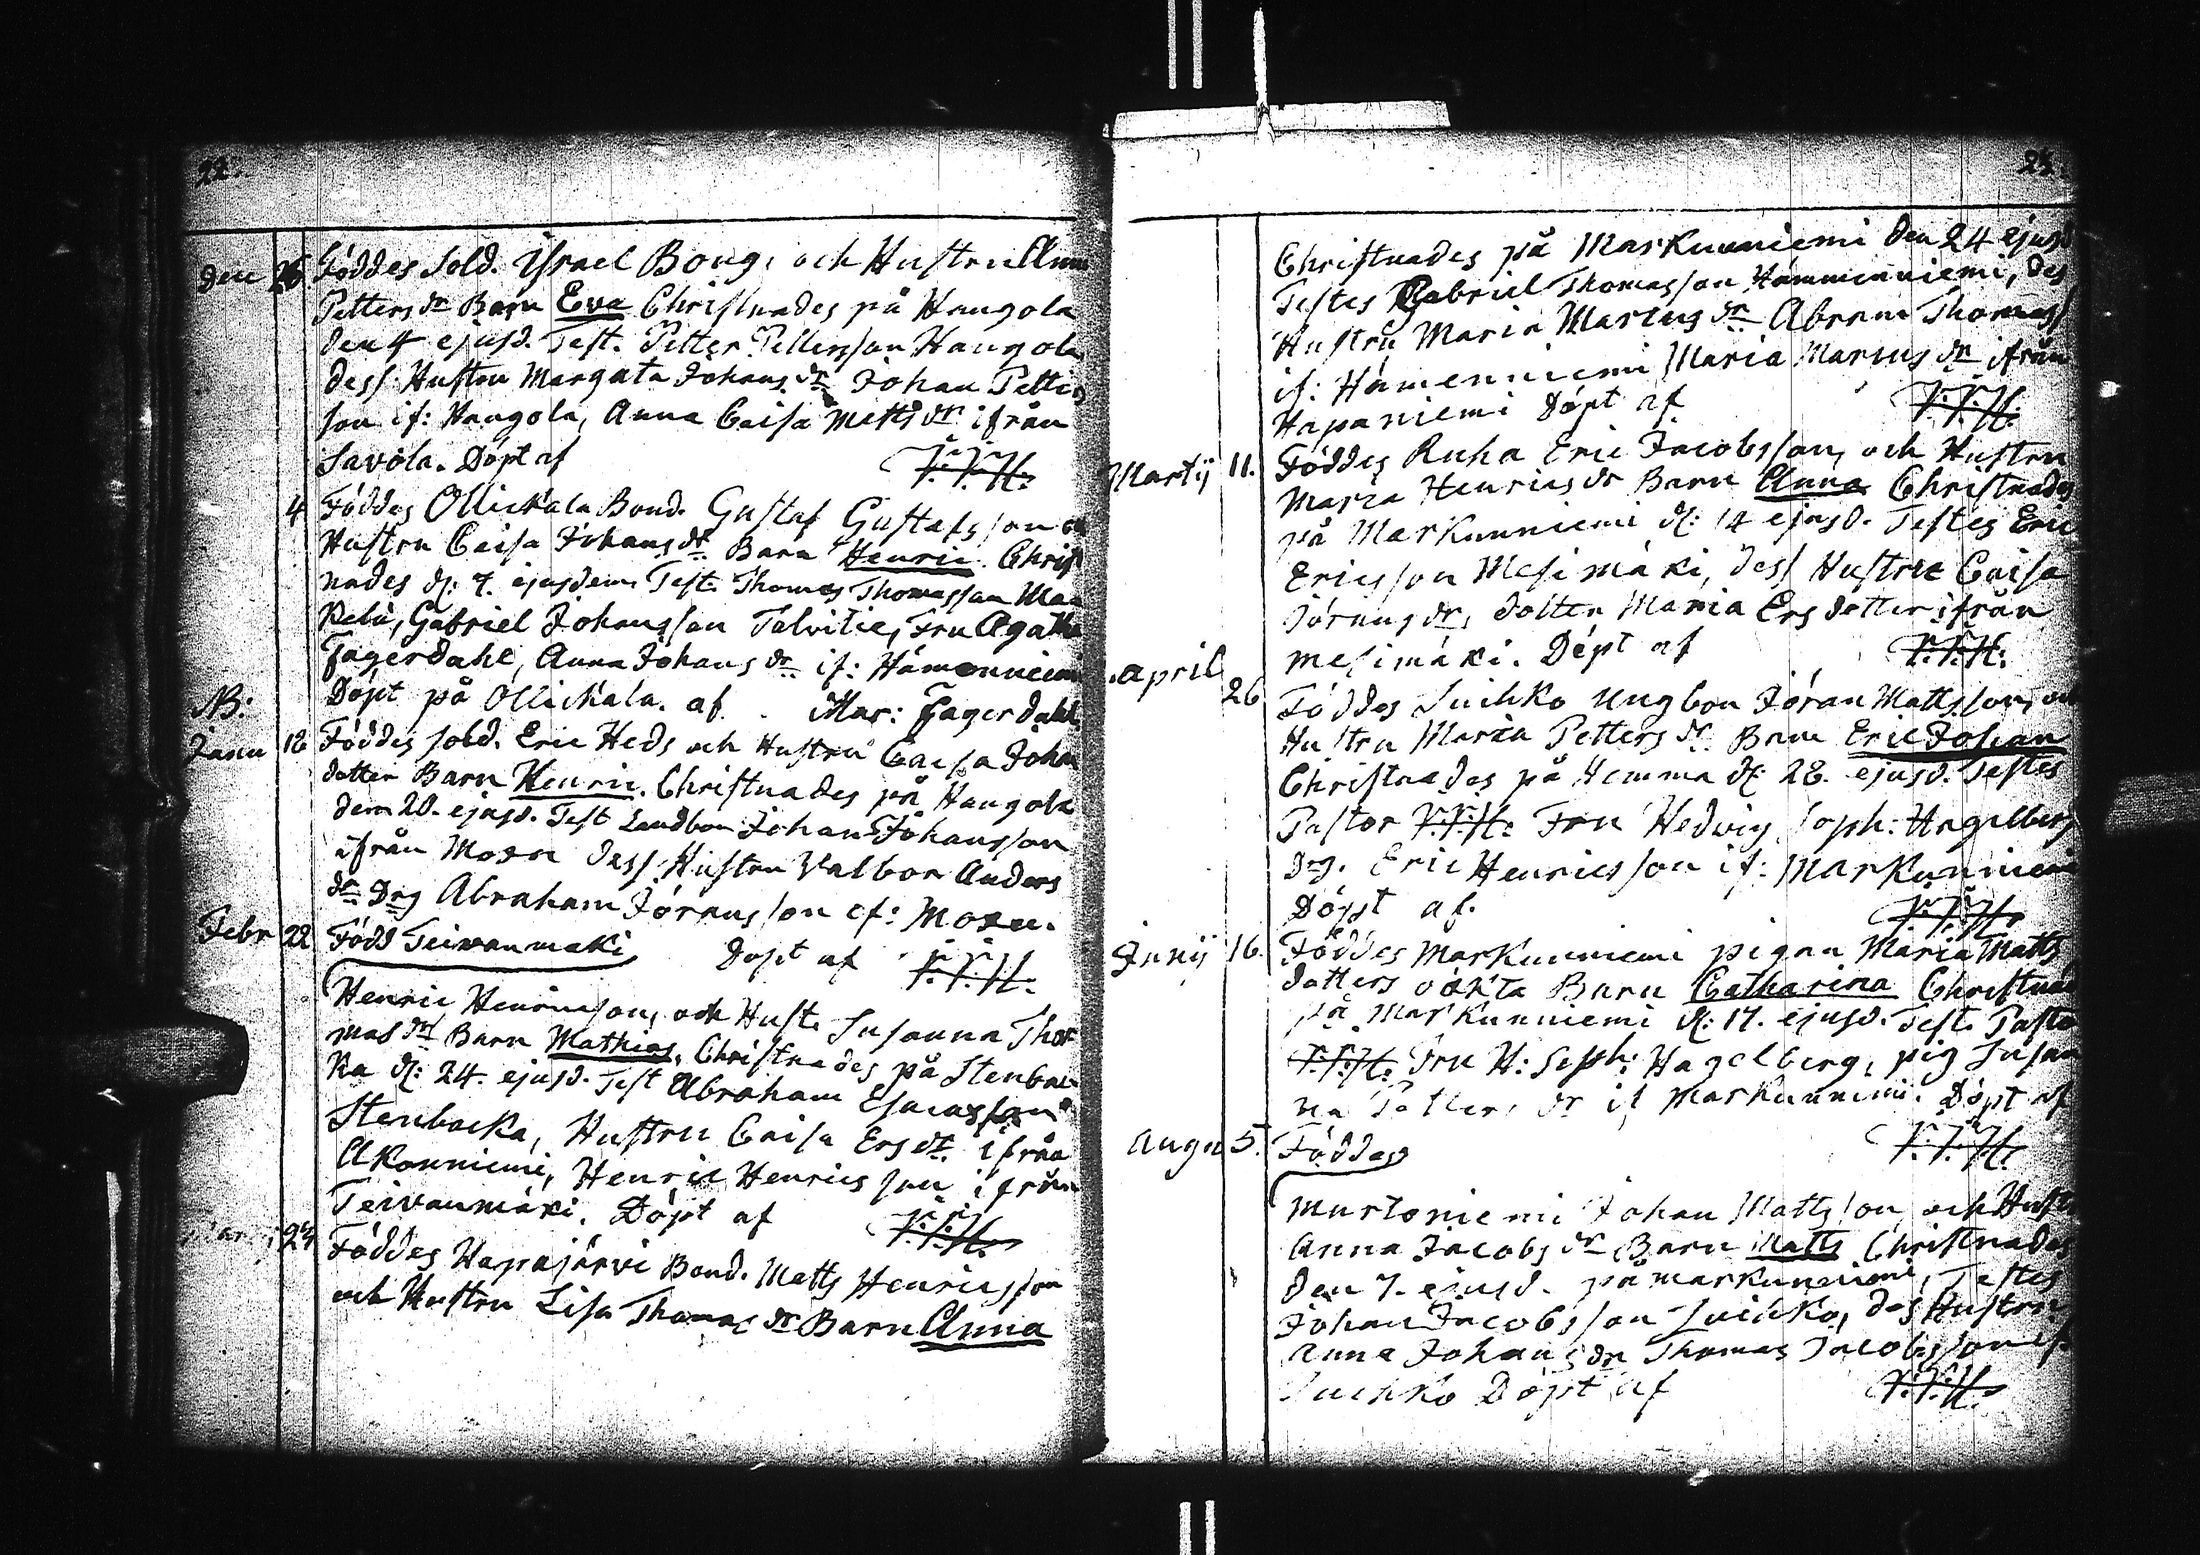 22.
den 26 Föddes Sold. Israel Boug, och Hustru Ann
Petters dr Barn Eva Christnades på Haugola
den 4 ejusd. Test. Petter Pettersson Haugola
dess Hustru Margata Johans dr Johan Petters
son if: Haugola, Anna Caisa Matts dr ifrån
Savola. Döpt af
4 Föddes Ollickala Bond. Gustaf Gustafsson
Hustru Caisa Johans dr Barn Henric. Christ
nades d: 7. ejusdem Test. Thomas Thomasson
Gabriel Johansson Talvitie, Fru Agatha
Fagerdahl, Anna Johans dr if: Hämenniemi
NB: Döpt på Ollickala. af Mar: Fagerdahl
Janu 18 Föddes sold. Eric Heds och Hustru Caisa Johan
dotter Barn Henric. Christnades på Haugola
dem 20. ejusd. Test Landbon Johan Johansson
ifrån Moxa dess Hustru Valbor Anders
dr Drg Abraham Jöransson if: Moxa.
Febr 22 Född Teivanmäki Döpt af
Henric Henricsson, och Hust. Susanna Tho
mas dr Barn Mathias, Christnades på Stenbac
ka d: 24. ejusd. Test Abraham Esaiasson
Stenbacka, Hustru Caisa Ers dr ifrån
Akonniemi, Henric Henricsson ifrån
Teivanmäki. Döpt af
23 Föddes Hapajärvi Bond. Matts Henricsson
och Hustru Lisa Thomas dr Barn Anna
Christnades på Markunniemi den 24 ejusd
Testes Gabriel Thomasson Hämmenniemi, des
Hustru Maria Martus dr Abram Thomass
if: Hämenniemi Maria Martus dr ifrån
Hapaniemi Döpt af
Martij 11. Föddes Ruha Eric Jacobsson, och Hustru
Maria Henrics dr Barn Anna Christnades
på Markunniemi d: 14 ejusd. Testes Eric
Ericsson Mesimäki, dess Hustru Caisa
Jörans dr, dotter Maria Ers dotter ifrån
Mesimäki. Döpt af
April
26 Föddes Suihko Ungbon Jöran Mattsson, och
Hustru Maria Petters dr Barn Eric Johan
Christnades på Hemma d: 28. ejusd. Testes
Pastor Fru Hedvig Soph: Hagelberg
Drg. Eric Henricsson if: Markunniemi
Döpt af.
Junij 16. Föddes Markunniemi pigan Maria Matts
dotters oäkta Barn Catharina Christnad
på Markunniemi d: 17. ejusd. Test. Pasto
Fru H: Soph: Hagelberg, pig Susan
na Petters dr if Markunniemi. Döpt af
Augu 5. Föddes
Murtoniemi Johan Mattsson, och Hust
Anna Jacobs dr Barn Matts Christnades
den 7. ejusd. på Markunniemi, Testes
Johan Jacobsson Suihko, des Hustru
Anna Johans dr Thomas Jacobsson if
Suihko Döpt af